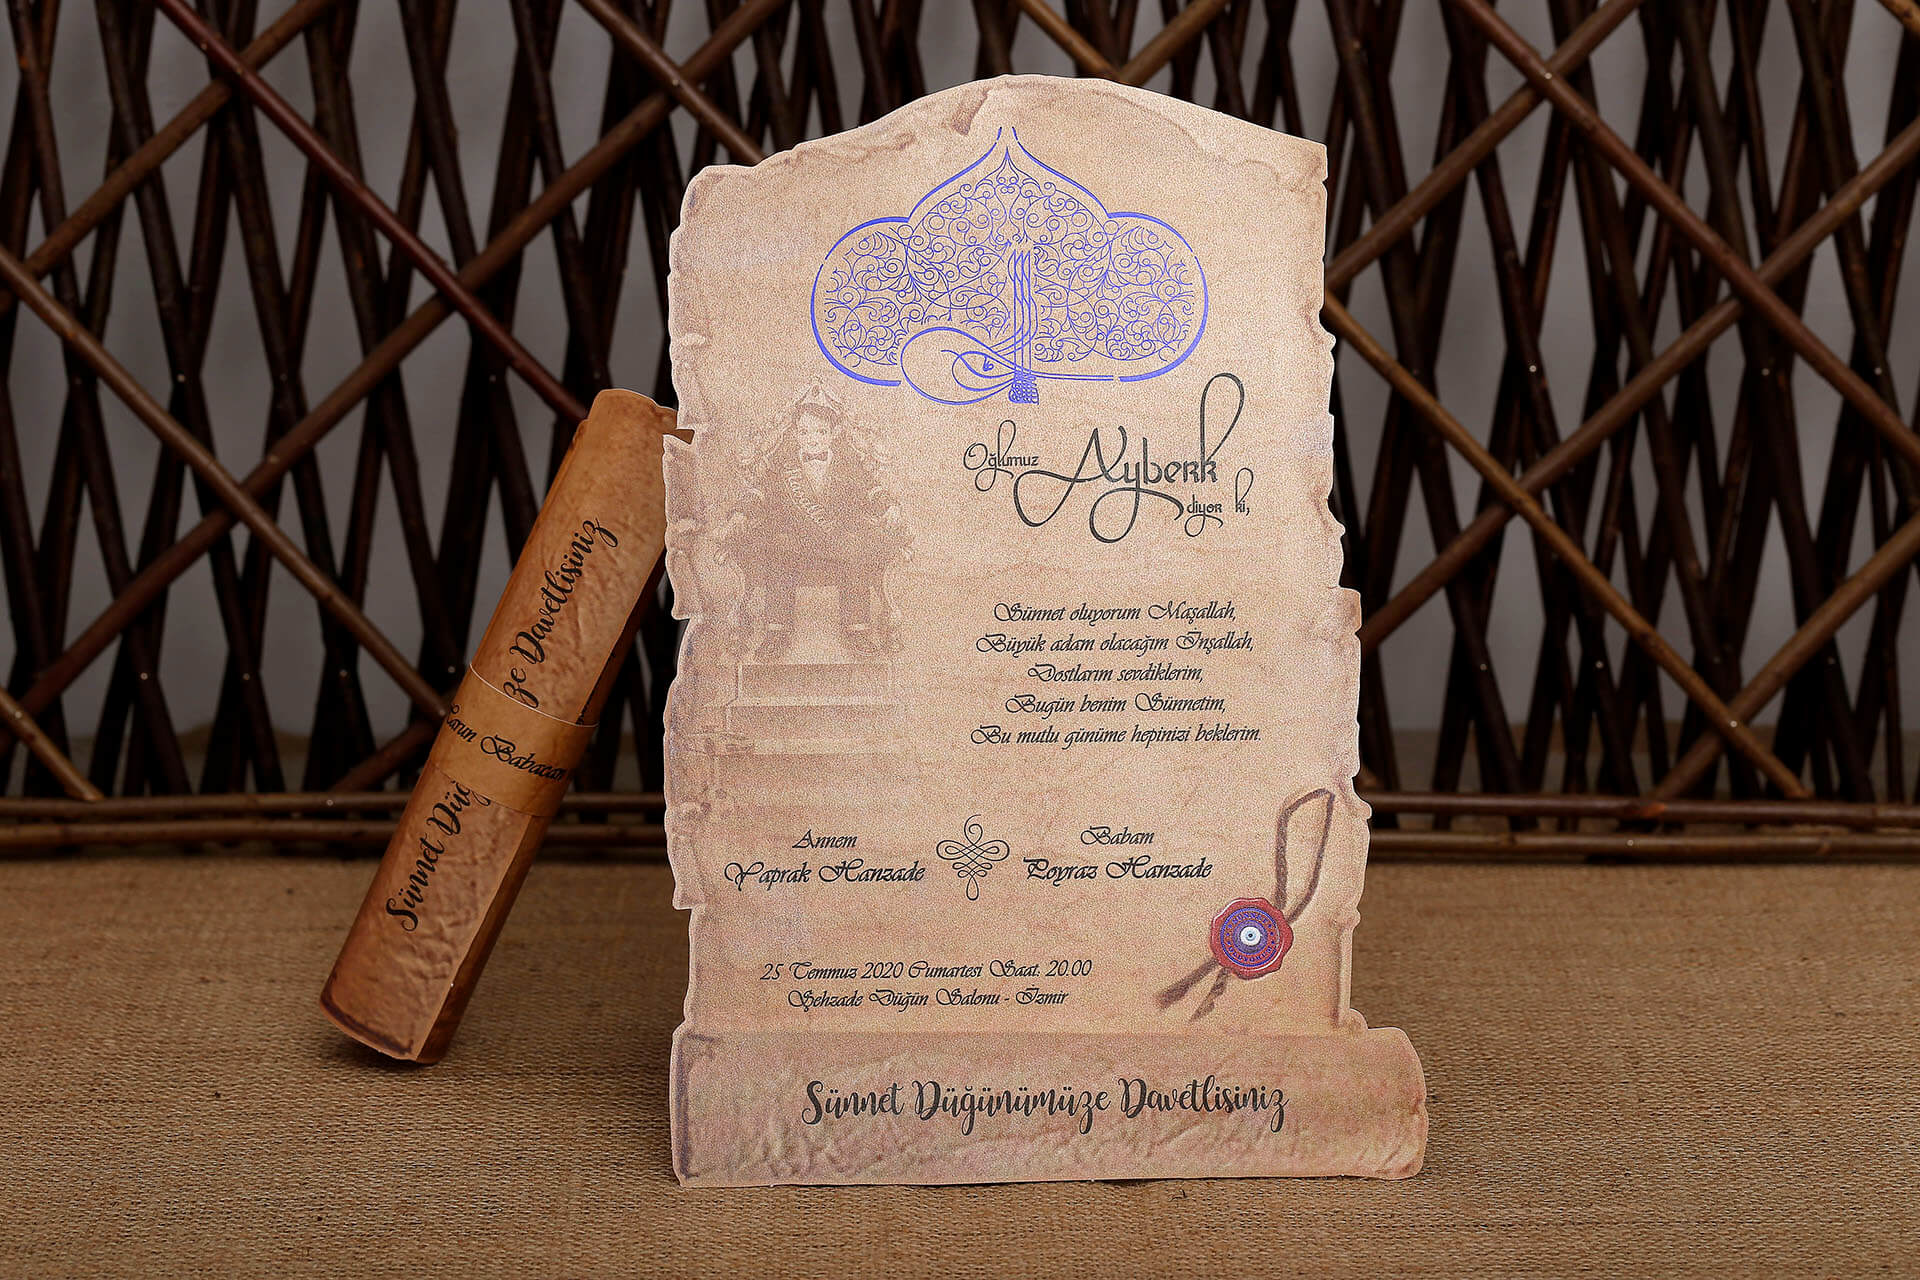 Oğlumuz Ayberk diyor ki,
Maşallah
Sünnet oluyorum Maşallah,
Büyük adam olacağım İnşallah,
Dostlarım sevdiklerim,
Bugün benim Sünnetim,
Bu mutlu günüme hepinizi beklerim.
Annem
Yaprak Hanzade
Babam
Poyraz Hanzade
25 Temmuz 2020 Cumartesi Saat: 20.00
Şehzade Düğün Salonu - İzmir
Sünnet Düğünümüze Davetlisiniz
Sünnet Düğ
ze Davetlisiniz
Babacan